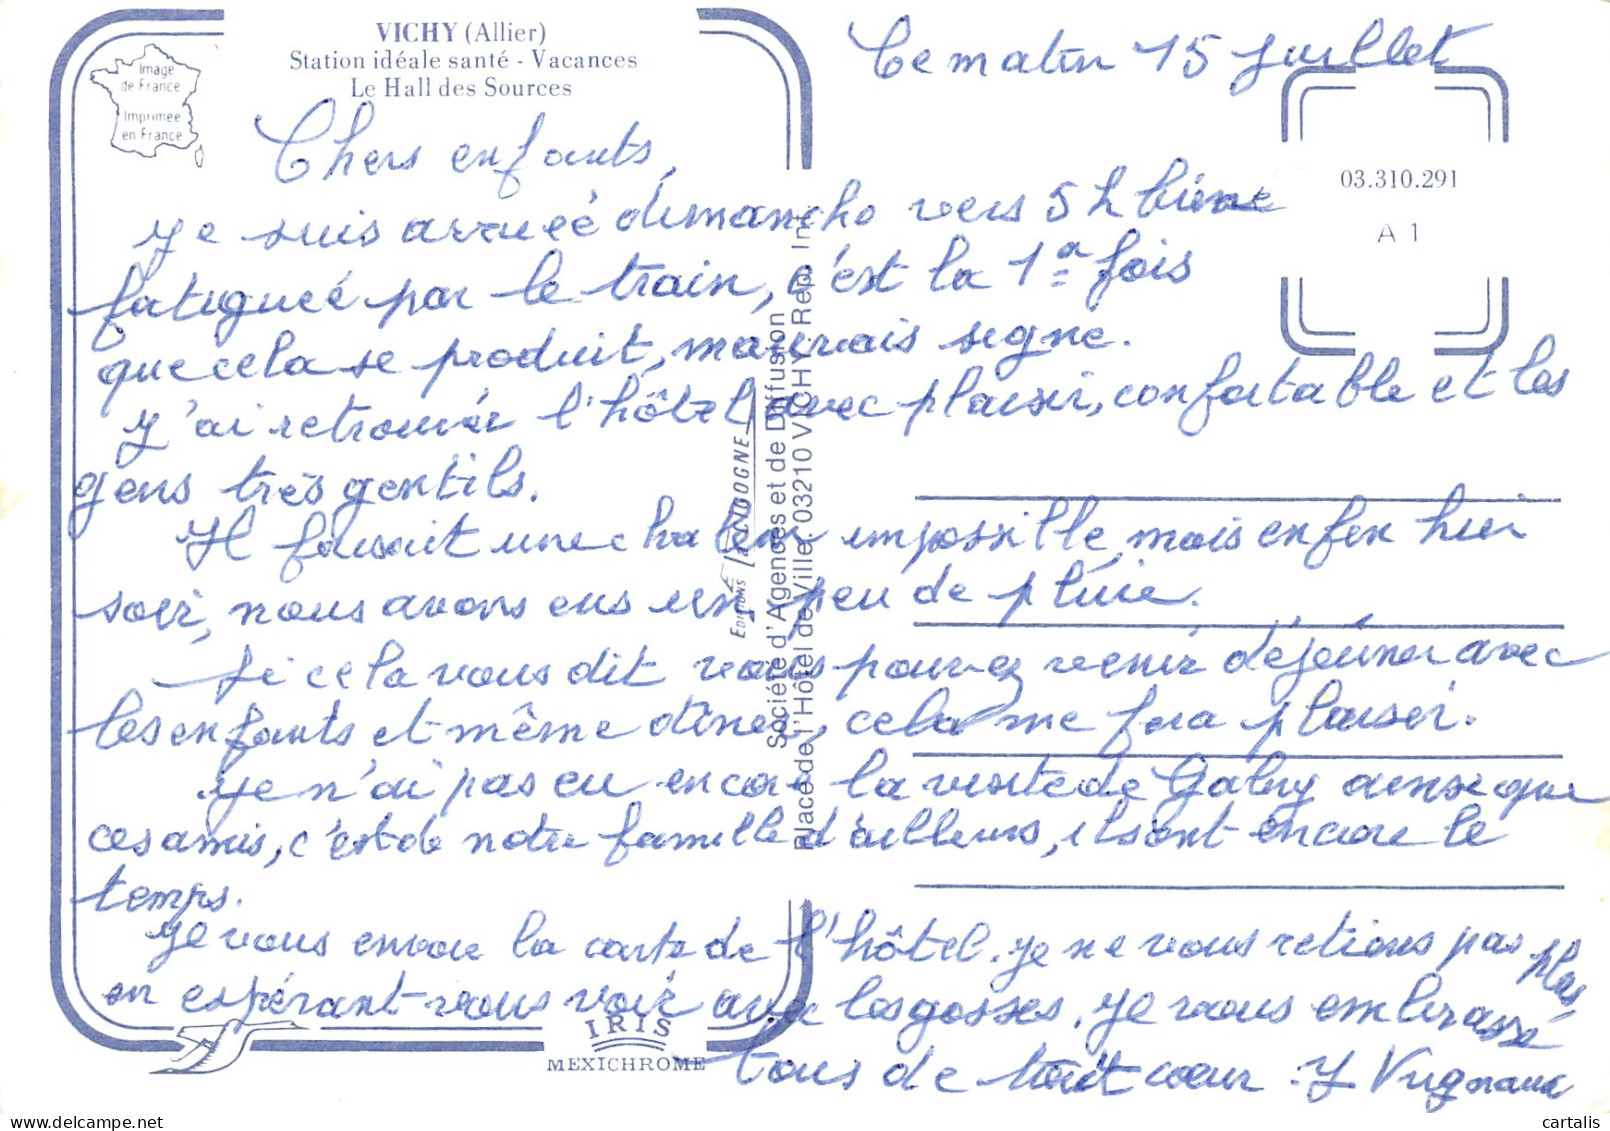 VICHY (Allier)
Station idéale santé - Vacances
Le Hall des Sources
Image
de France
Imprimée
en France
Ce matin 15 juillet
03.310.291
A 1
Chers enfants,
Je suis arrivée dimanche vers 5 h bien
fatiguée par le train, c'est la 1a fois
que cela se produit, mauvais signe.
J'ai retrouvér l'hôtel avec plaisir, confortable et les
gens très gentils.
Il faisait une chaleur impossible, mais enfin hier
soir, nous avons eus un peu de pluie.
Si cela vous dit vous pouvez venir déjeuner avec
les enfants et même dîner, cela me fera plaisir.
Je n'ai pas eu encore la visite de Gaby ainsi que
ces amis, c'est de notre famille d'ailleurs, ils ont encore le
temps.
Je vous envoie la carte de l'hôtel. Je ne vous retiens pas plus
en espérant vous voir avec les gosses. Je vous embrasse
tous de tout coeur. Y Vugnaux
EDITIONS LA CIGOGNE
Société d'Agences et de Diffusion
Place de l'Hôtel de Ville. 03210 VICHY. Rep. Int.
IRIS
MEXICHROME
cartalis